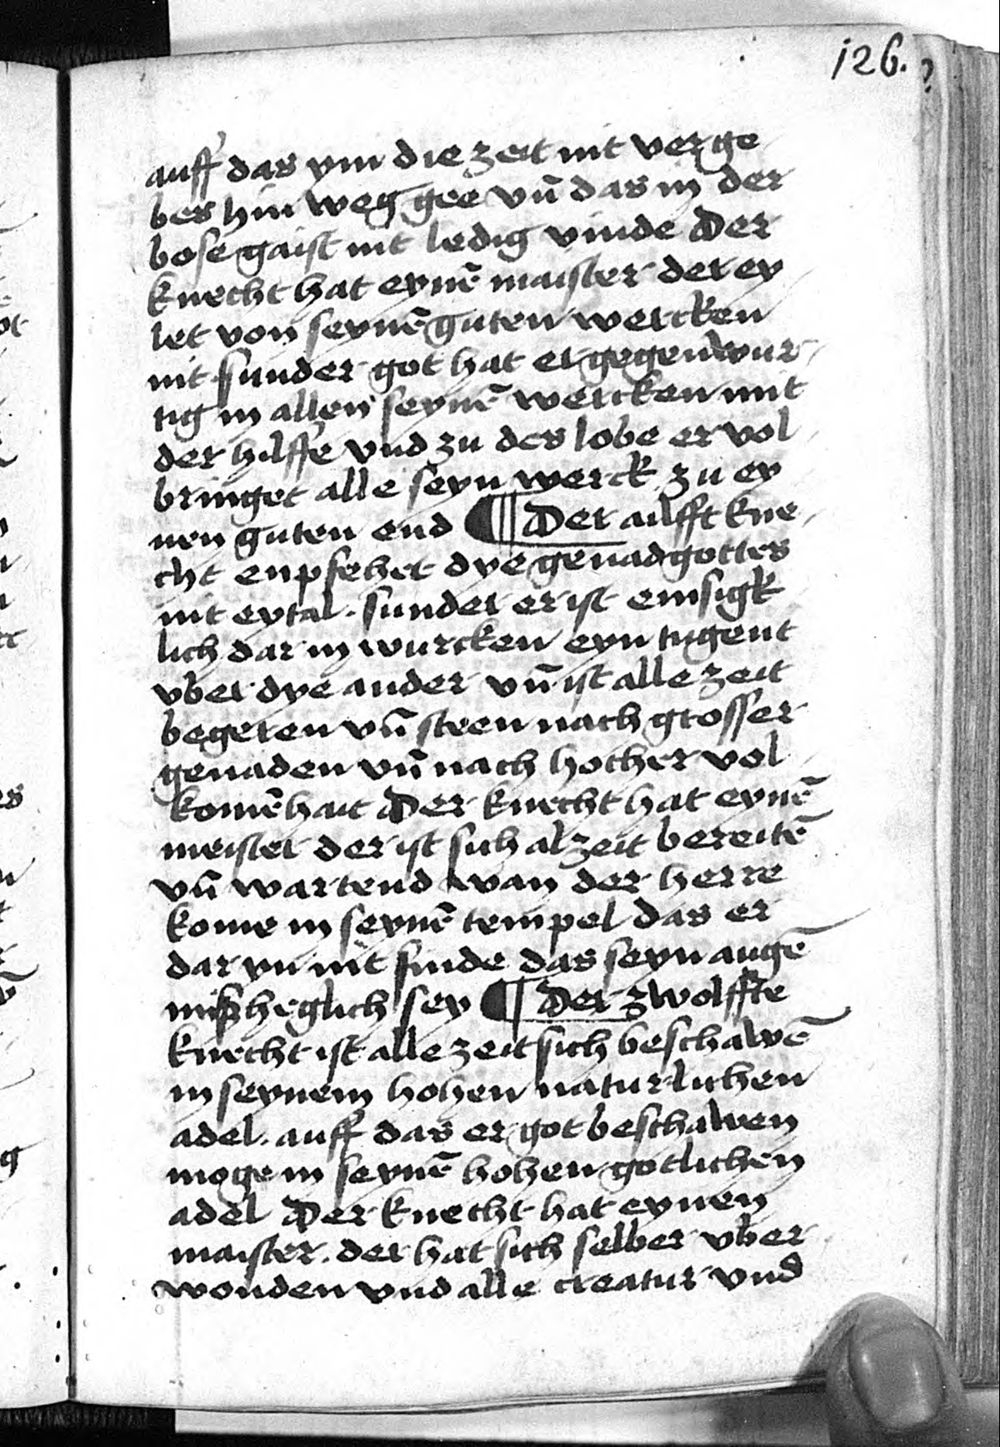 126.
auff das ym die zeit nit verge
bes hin weg gee vn̄ das in der
bose gaist nit ledig vinde Der
knecht hat eynē maister der ey
let von seynē guten wercken
nit sunder got hat er gegenwur
tig in allen seynē wercken mit
der hilffe vnd zu des lobe er vol
bringet alle seyn werck zu ey
nen guten end ¶ Der ailfft kne
cht enpfehet dye genad gottes
nit eytal · sunder er ist emsigk
lich dar in wurcken eyn tugent
vber dye ander vn̄ ist alle zeit
begeren vn̄ steen nach grosser
genaden vn̄ nach hocher vol
komēhait Der knecht hat eynē
meister der ist sich alzeit bereitē
vn̄ wartend wan der herre
kome in seynē tempel das er
dar yn nit finde das seyn augē
mißheglich sey ¶ Der zwolffte
knecht ist alle zeit sich beschawē
in seynem hohen naturlichen
adel · auff das er got beschawen
moge in seynē hohen gotlichen
adel Der knecht hat eynen
maister · der hat sich selber vber
wonden vnd alle creatur vnd